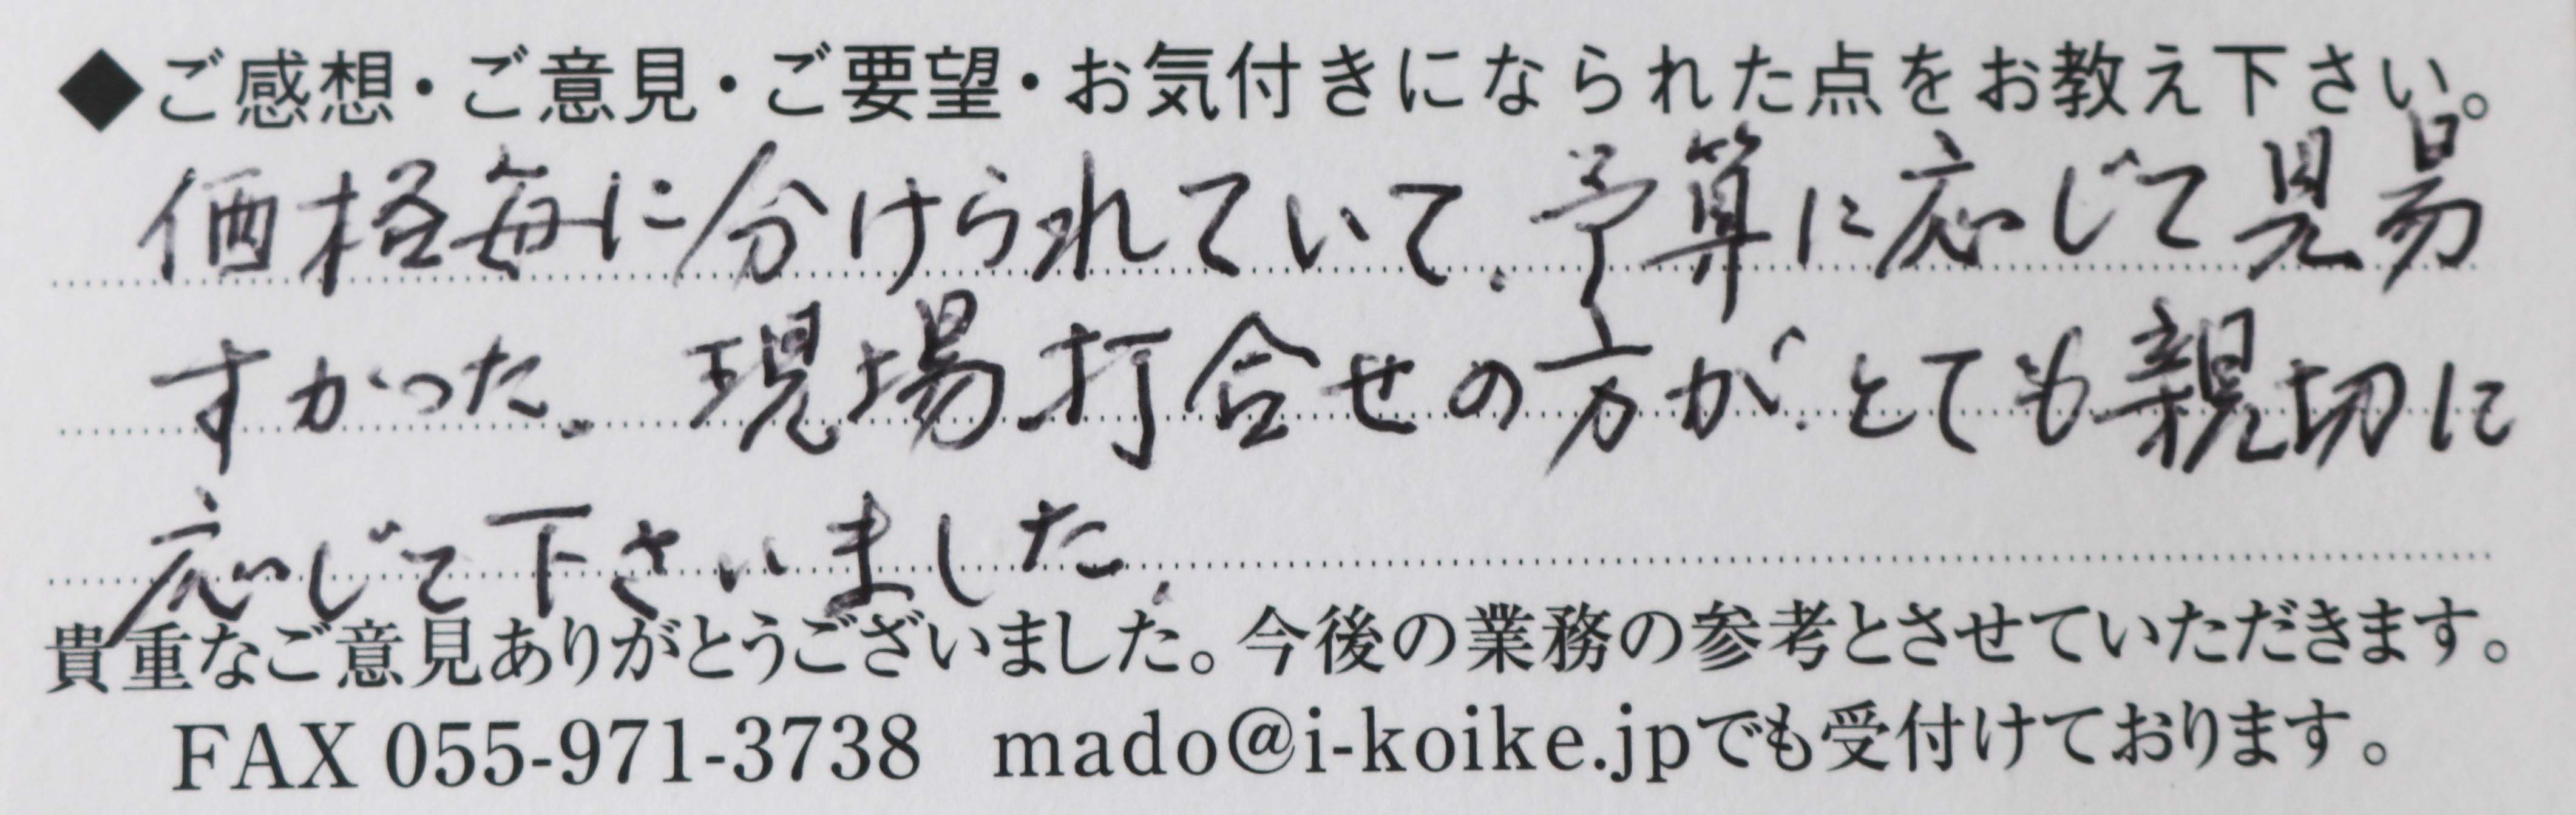 ◆ご感想・ご意見・ご要望・お気付きになられた点をお教え下さい。
価格毎に分けられていて、予算に応じて見易
すかった。現場打合せの方が、とても親切に
応じて下さいました。
貴重なご意見ありがとうございました。今後の業務の参考とさせていただきます。
FAX 055-971-3738 mado@i-koike.jpでも受付けております。